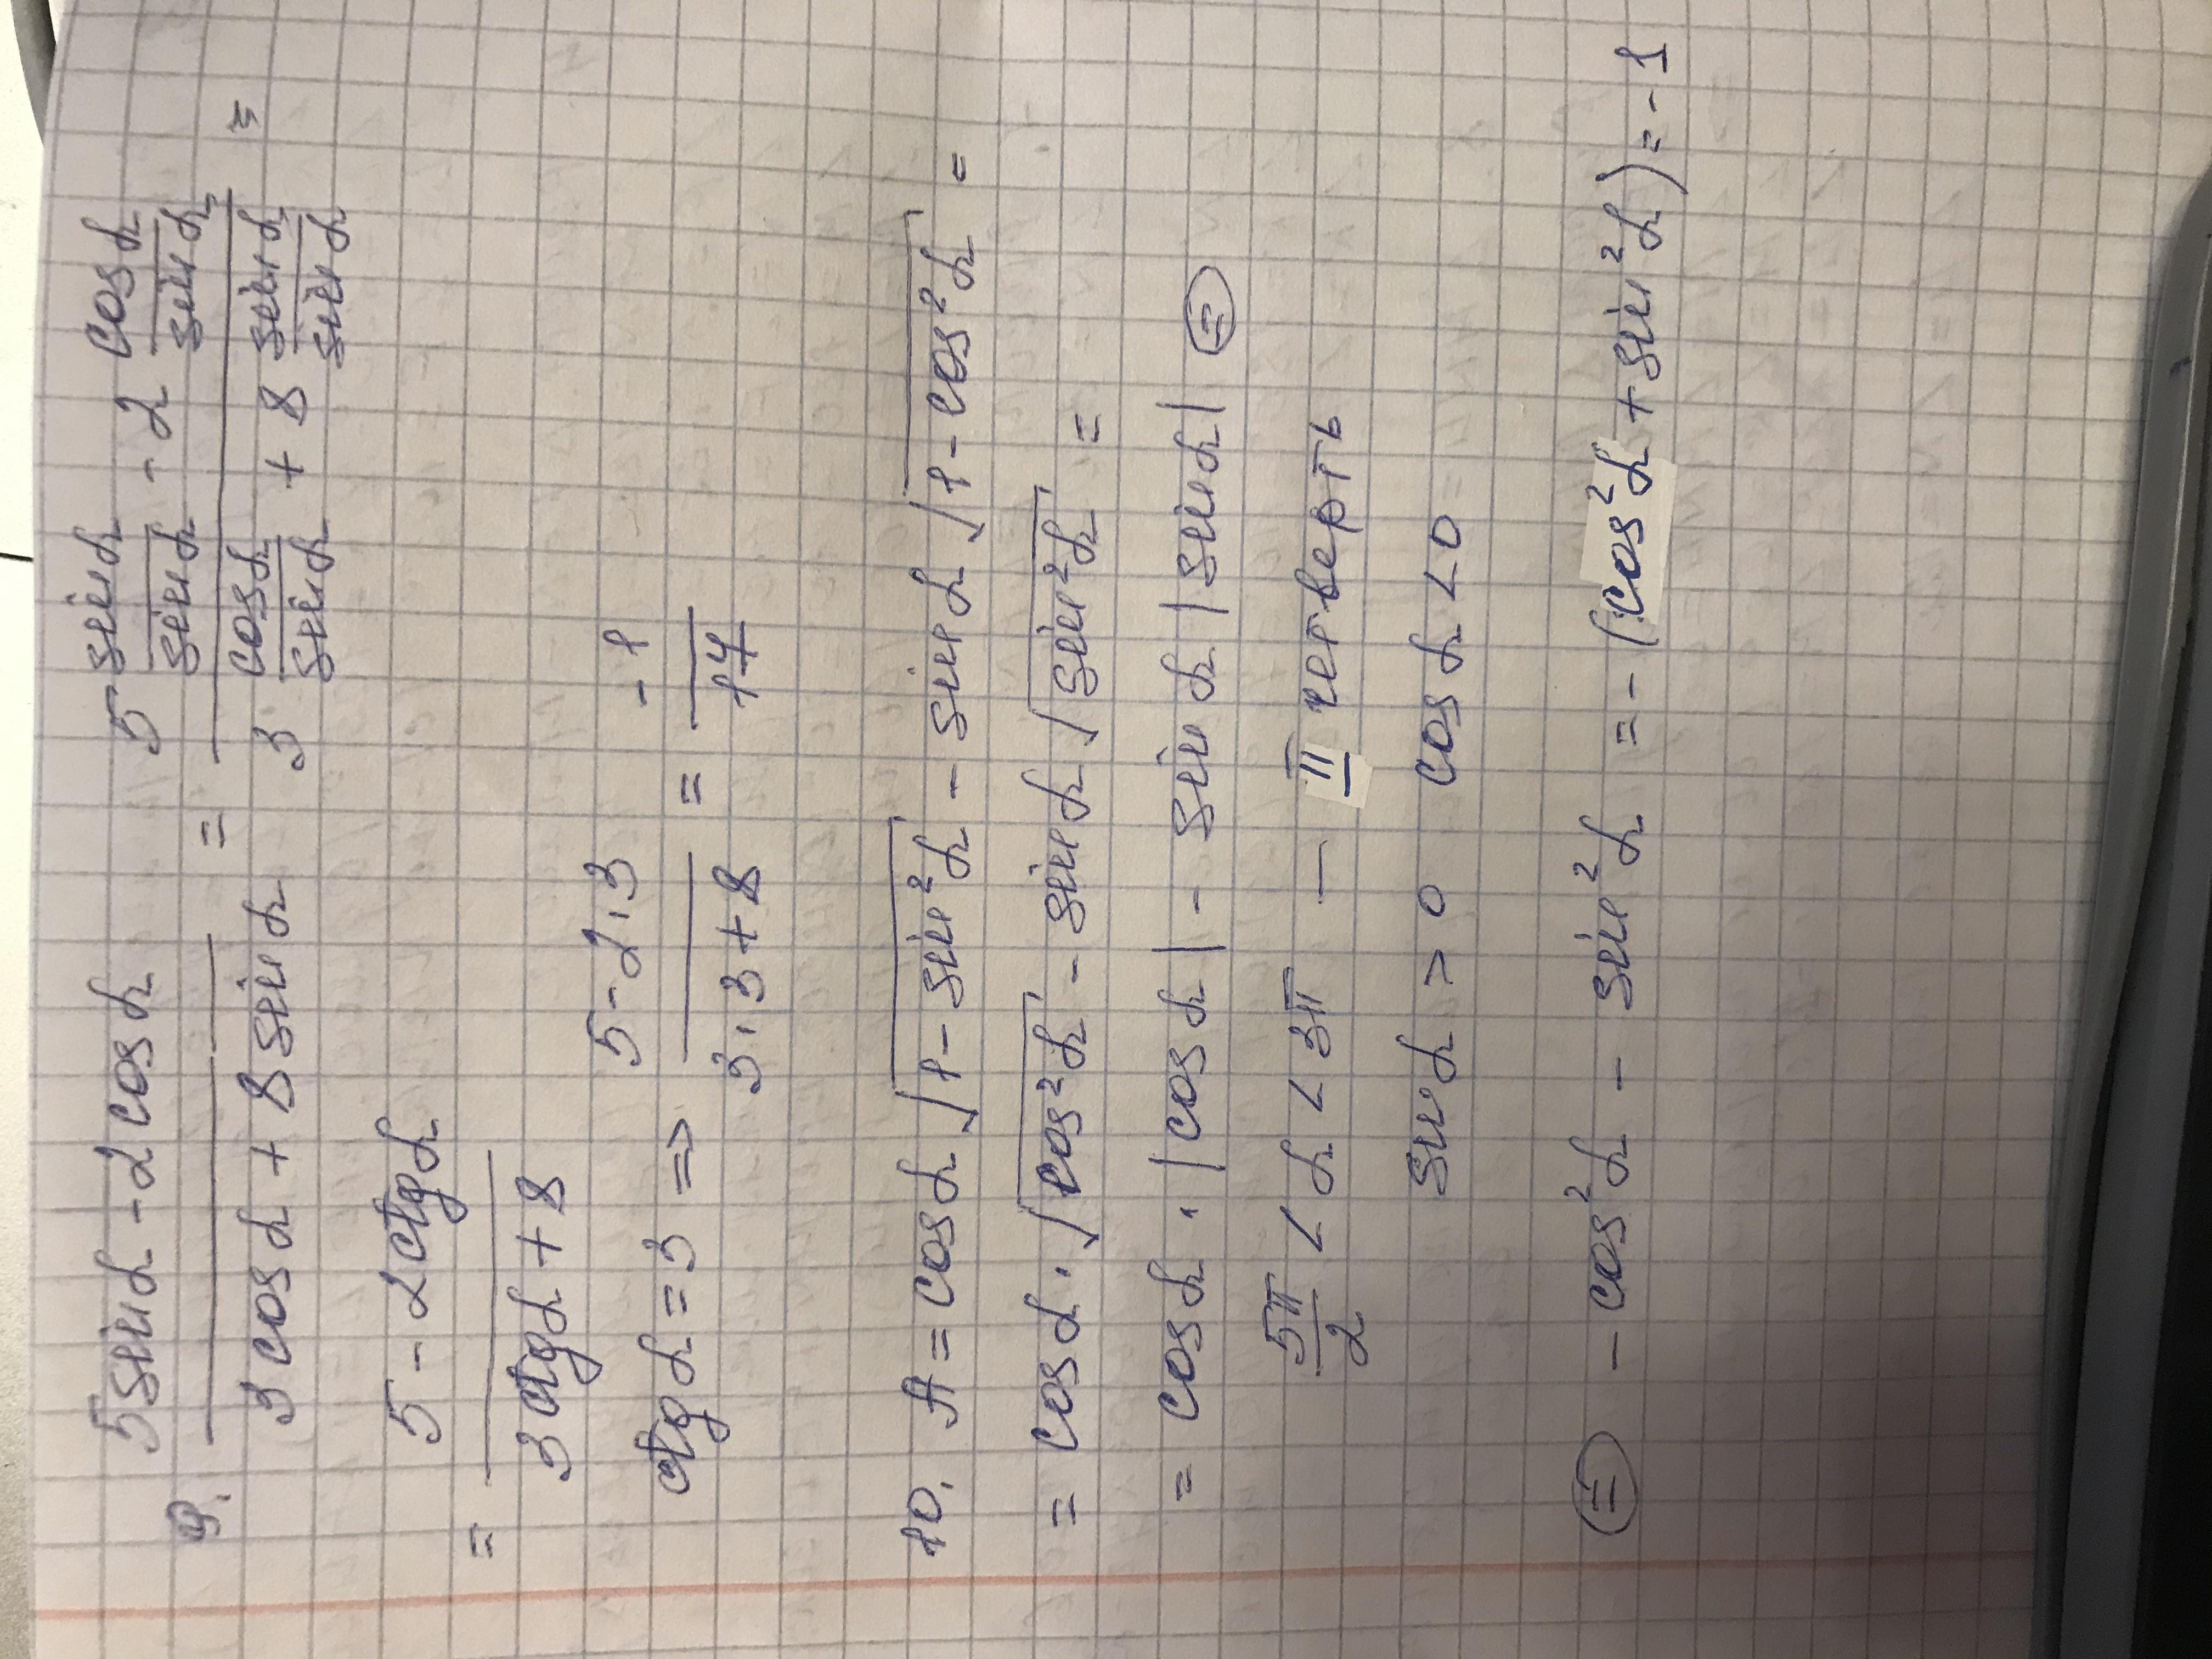 9. (5 sin α - 2 cos α)/(3 cos α + 8 sin α) = (5 sin α/sin α - 2 cos α/sin α)/(3 cos α/sin α + 8 sin α/sin α) =
= (5 - 2 ctg α)/(3 ctg α + 8)
ctg α = 3 => (5 - 2·3)/(3·3 + 8) = -1/17
10. A = cos α √(1 - sin² α) - sin α √(1 - cos² α) =
= cos α · √(cos² α) - sin α √(sin² α) =
= cos α · |cos α| - sin α |sin α| =
5π/2 < α < 3π - II четверть
sin α > 0 cos α < 0
= - cos² α - sin² α = - (cos² α + sin² α) = -1